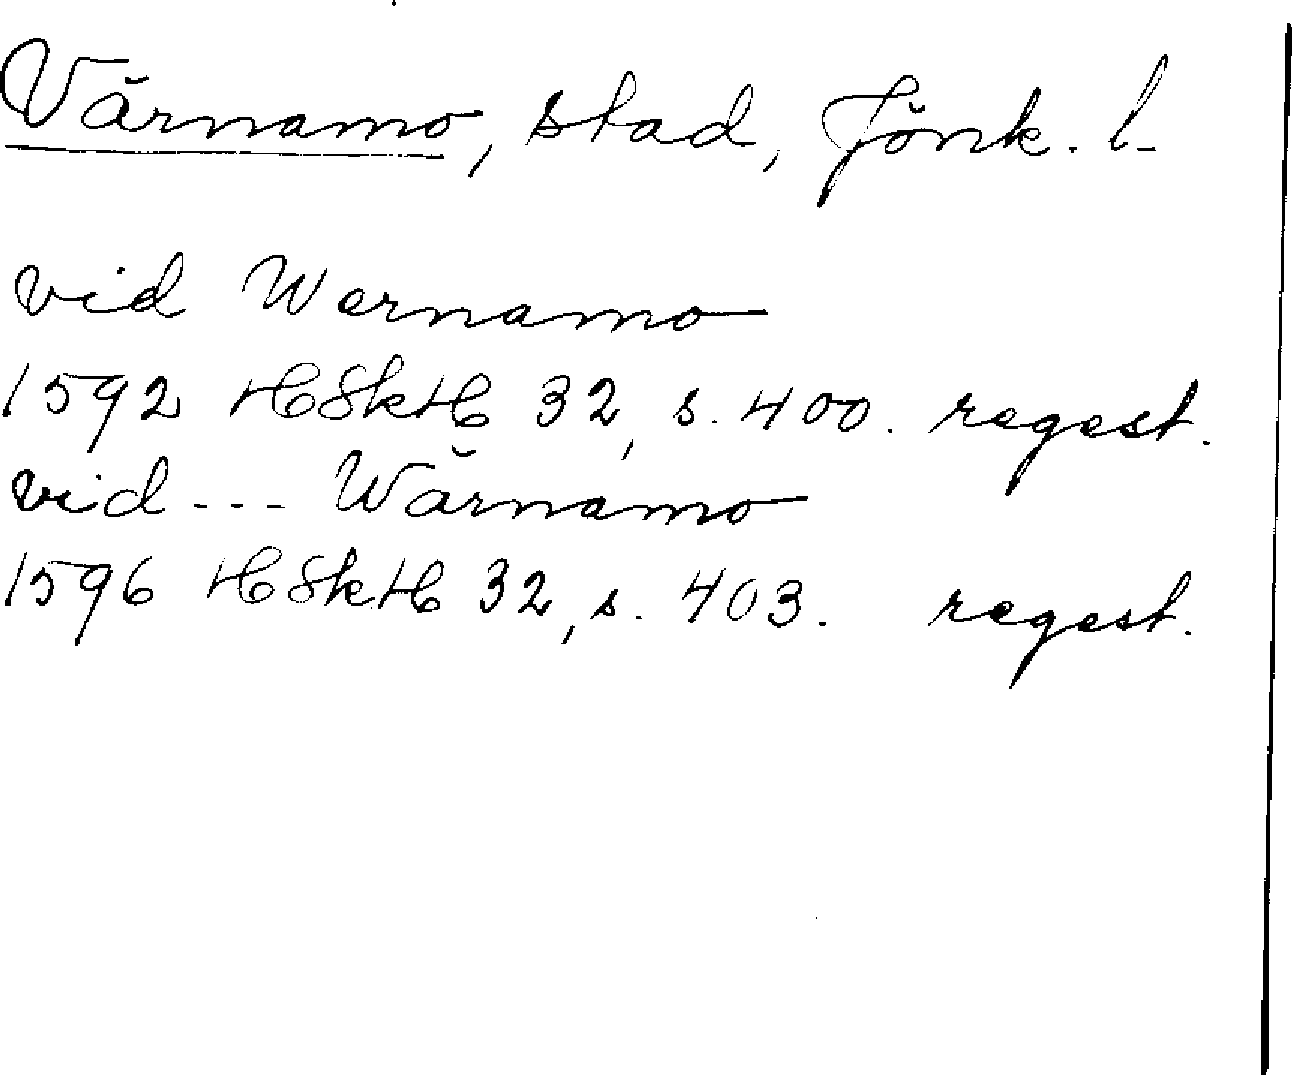 Värnamo, stad, Jönk. l.
vid Wernamo
1592 HSkH 32, s. 400. regest.
vid --- Wärnamo
1596 HSkH 32, s. 403. regest.